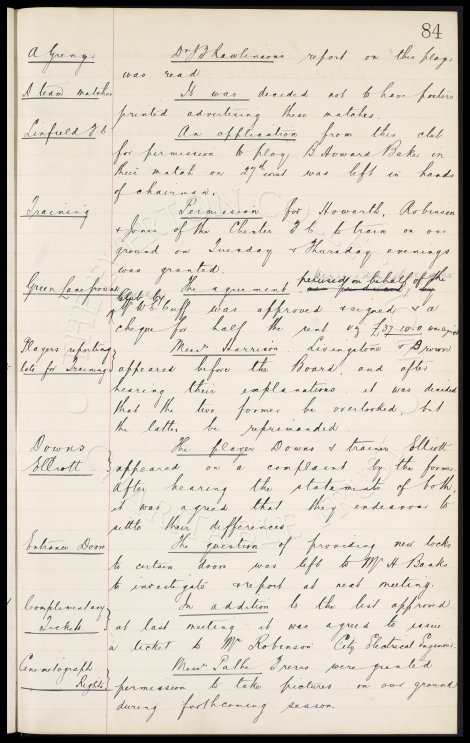 84
A Grenyer Dr J B Rawlinsons report on this player
was read
A team matches It was decided not to have posters
printed advertising these matches.
Linfield F.C. An application from this club
for permission to play B Howard Baker in
their match on 27th inst was left in hands
of chairman.
Training Permission for Howarth, Robinson
& Jones of the Chester F.C. to train on our
ground on Tuesday & Thursday evenings
was granted.
Green Lane ground The agreement on behalf of the
Club by Mr W C Cuff was approved & signed & a
cheque for half the rent viz £37.10.0
Players reporting Messrs Harrison, Livingstone & Brown
late for Training appeared before the Board and after
hearing their explanations it was decided
that the two former be overlooked, but
the latter be reprimanded.
Downs The player Downs & trainer Elliott
Elliott appeared on a complaint by the former
After hearing the statements of both,
it was agreed that they endeavour to
settle their differences.
Entrance Doors The question of providing new locks
to certain doors was left to Mr A Banks
to investigate & report at next meeting.
Complimentary In addition to the list approved
Tickets at last meeting it was agreed to issue
a ticket to Mr Robinson City Electrical Engineer
Cinematograph Messrs Pathe Freres were granted
Rights permission to take pictures on our ground
during forthcoming season.